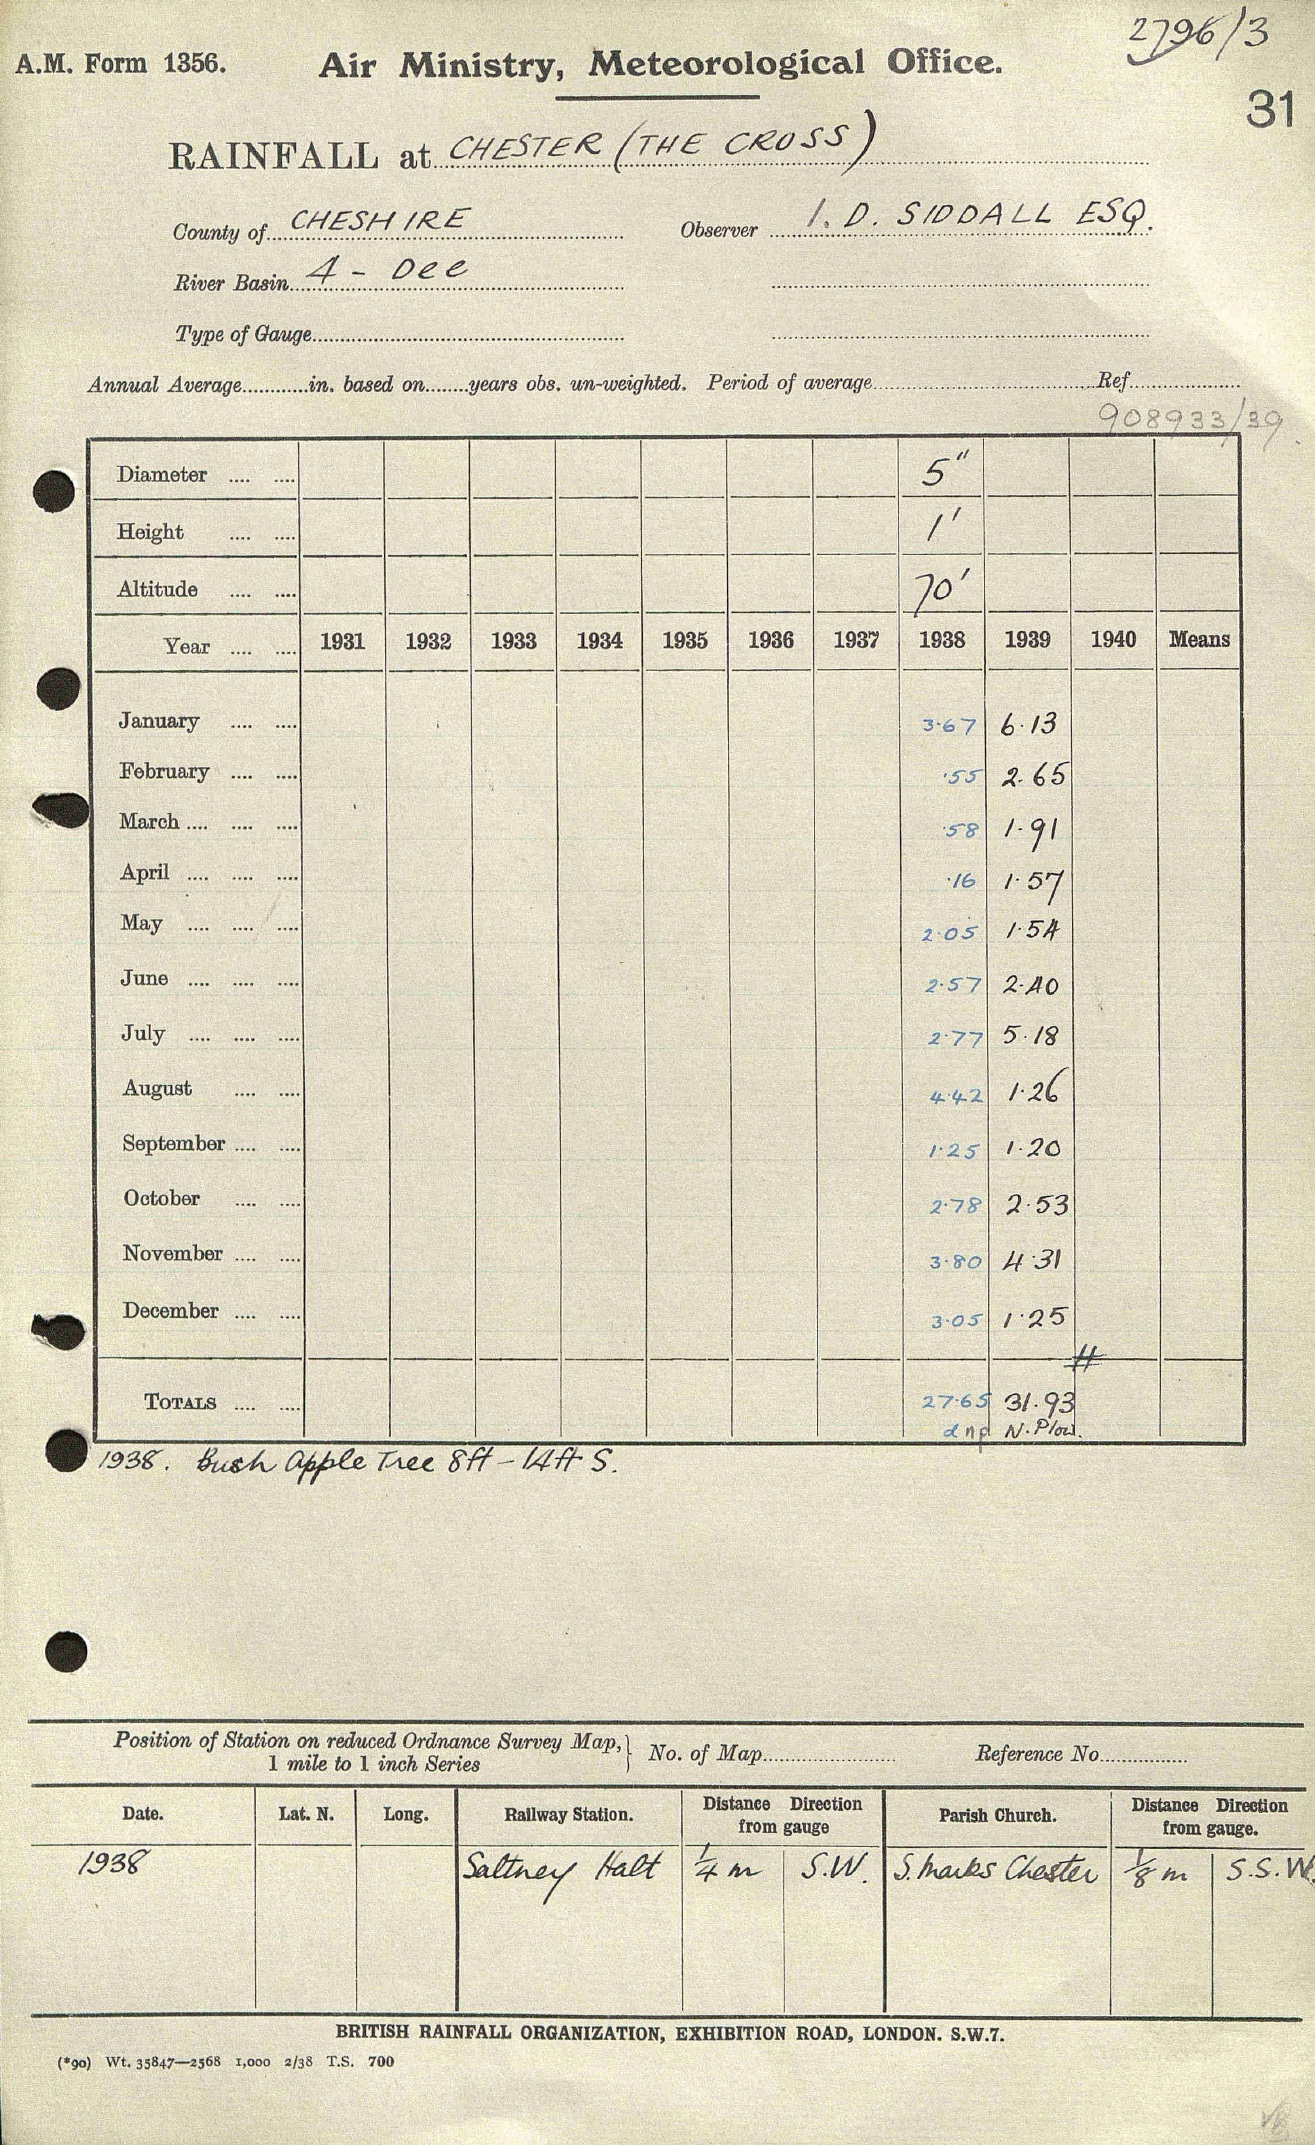 2796/3
A.M. Form 1356. Air Ministry, Meteorological Office.
31
RAINFALL at CHESTER (THE CROSS)
County of CHESHIRE Observer I. D. SIDDALL ESQ.
River Basin 4 - Dee
Type of Gauge
Annual Average in. based on years obs. un-weighted. Period of average Ref
908933/39
Diameter 5"
Height 1'
Altitude 70'
Year 1931 1932 1933 1934 1935 1936 1937 1938 1939 1940 Means
January 3·67 6·13
February ·55 2·65
March ·58 1·91
April ·16 1·57
May 2·05 1·54
June 2·57 2·40
July 2·77 5·18
August 4·42 1·26
September 1·25 1·20
October 2·78 2·53
November 3·80 4·31
December 3·05 1·25
TOTALS 27·65 31·93
dnp N. Plow.
1938. Bush Apple Tree 8ft - 14ft S.
Position of Station on reduced Ordnance Survey Map, 1 mile to 1 inch Series } No. of Map Reference No
Date. Lat. N. Long. Railway Station. Distance Direction from gauge Parish Church. Distance Direction from gauge.
1938 Saltney Halt 1/4 m S.W. S. Marks Chester 1/8 m S.S.W.
BRITISH RAINFALL ORGANIZATION, EXHIBITION ROAD, LONDON. S.W.7.
(*90) Wt. 35847—2568 1,000 2/38 T.S. 700